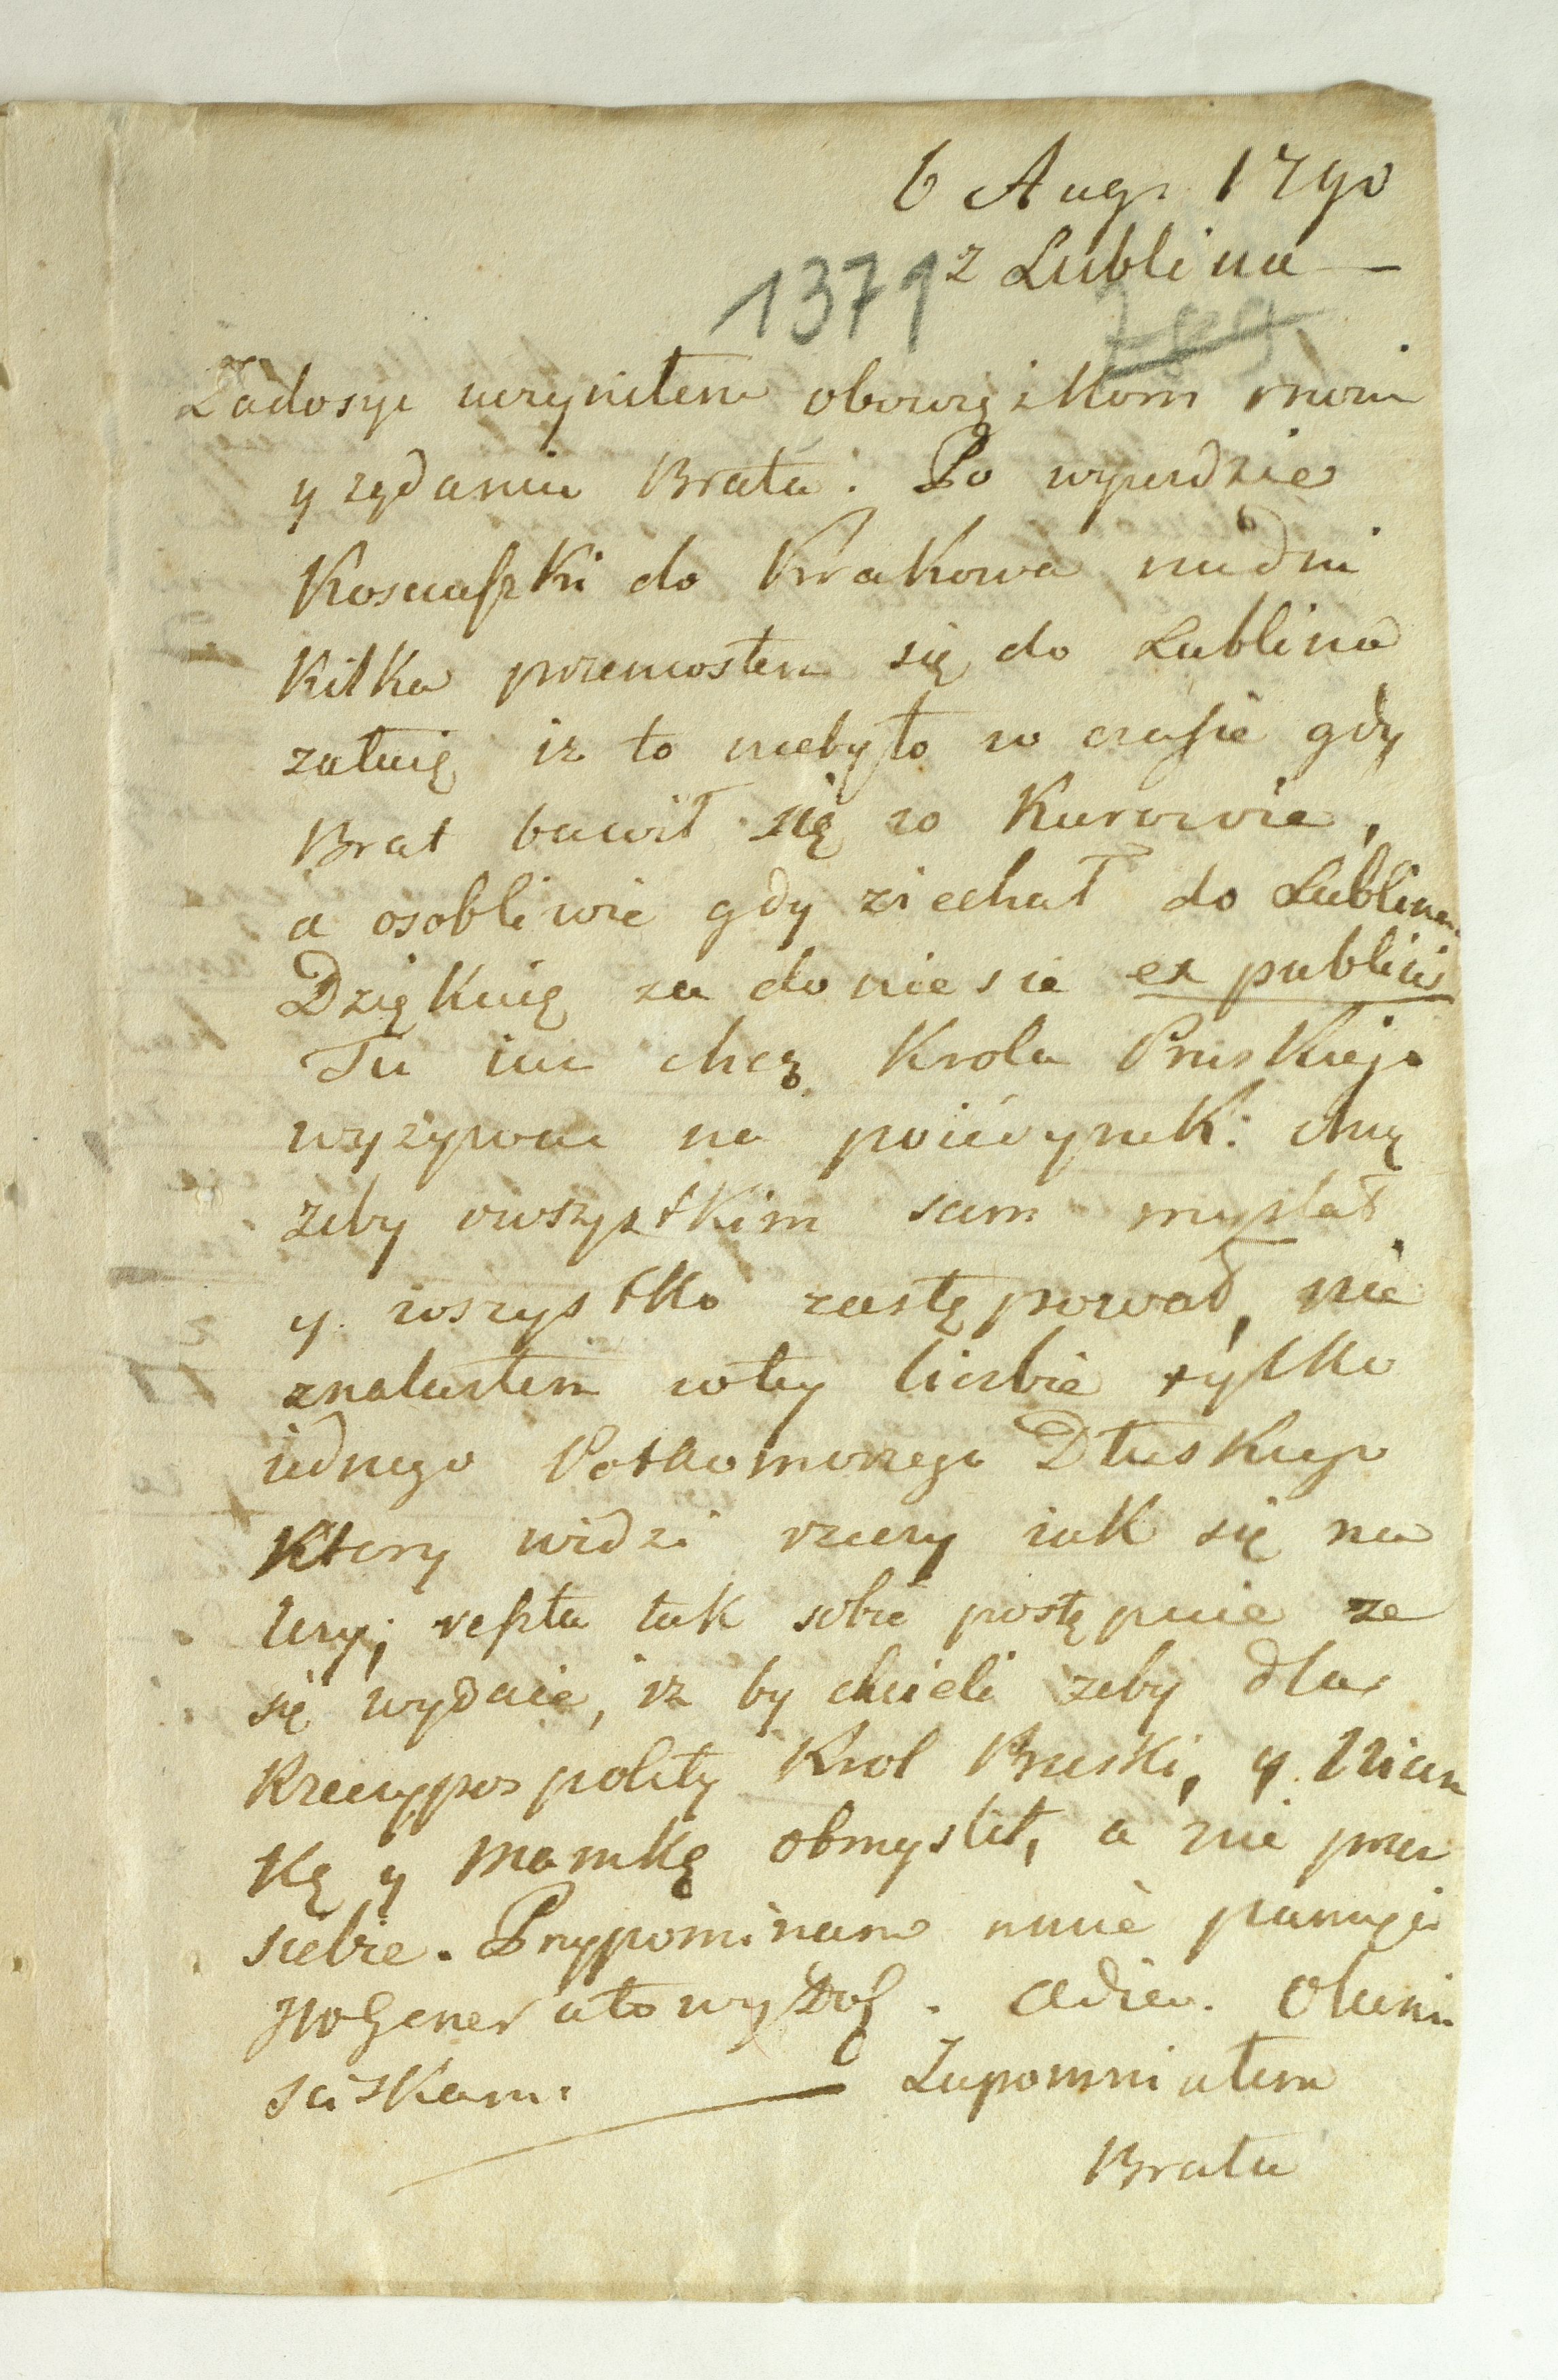 6 Aug. 1790
z Lublina
1379
Zadosyc uczyniłem obowiązkom moim
y rządaniu Brata. Po wyiezdzie
Kosciuszki do Krakowa w dni
kilka przeniosłem się do Lublina
załuię iz to niebyło w czasie gdy
Brat bawił się w Kurowie,
a osobliwie gdy ziechał do Lublina.
Dziękuię za doniesie ex publicis
Tu iuz chcą Krola Pruskiego
wyzywac na poiedynek: chcą
zeby owszystkim sam myslał
y wszystko zastępował, nie
znalazłem wtey liczbie tylko
iednego Potkomorzego Dłuskiego
ktory widzi rzeczy iak się na
lezy; reszta tak sobie postępuie ze
się wydaie, iz by chcieli zeby dla
Rzeczypospolity Krol Pruski, y Nian
kę y Mamkę obmyslił, a nie przez
siebie. Przypominam mnie pamięci
JWGenerałowy Dob. Adieu. Oluni
sciskam. Zapomniałem
Brata